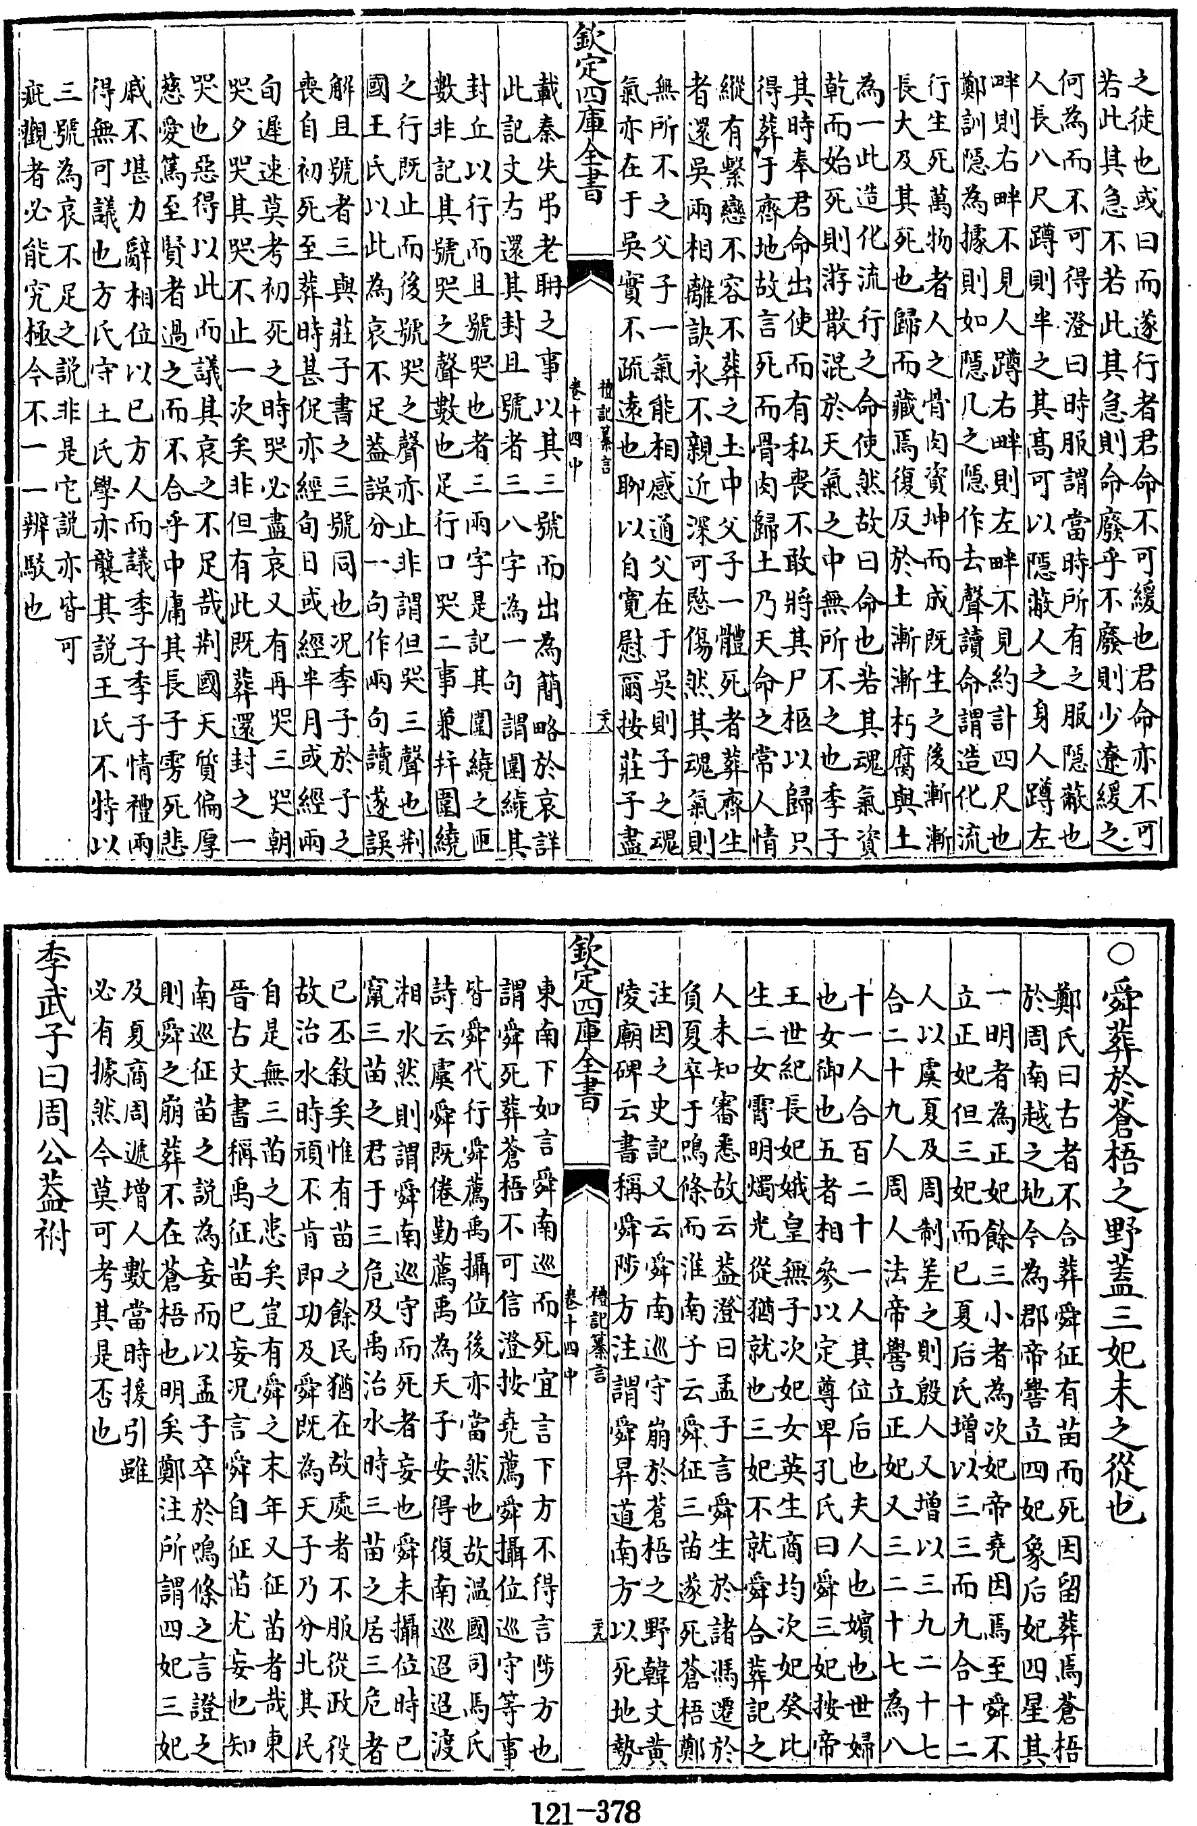 之徒也或曰而遂行者君命不可緩也君命亦不可
若此其急不若此其急則命廢乎不廢則少遼緩之
何為而不可得澄曰時服謂當時所有之服隱蔽也
人長八尺蹲則半之其髙可以隱蔽人之身人蹲左
畔則右畔不見人蹲右畔則左畔不見約計四尺也
鄭訓隱為據則如隱几之隱作去聲讀命謂造化流
行生死萬物者人之骨肉資坤而成既生之後漸漸
長大及其死也歸而藏焉復反於土漸漸朽腐與土
為一此造化流行之命使然故曰命也若其魂氣資
乾而始死則游散混於天氣之中無所不之也季子
其時奉君命出使而有私喪不敢將其尸柩以歸只
得葬于齊地故言死而骨肉歸土乃天命之常人情
縱有繫戀不容不葬之土中父子一體死者葬齊生
者還吳兩相離訣永不親近深可愍傷然其魂氣則
無所不之父子一氣能相感通父在于吳則子之魂
氣亦在于吳實不疏遠也聊以自寛慰爾按莊子盡
欽定四庫全書
禮記纂言
卷十四中
二八
載秦失弔老聃之事以其三號而出為簡略於哀詳
此記文右還其封且號者三八字為一句謂圍繞其
封丘以行而且號哭也者三兩字是記其圍繞之匝
數非記其號哭之聲數也足行口哭二事兼幷圍繞
之行既止而後號哭之聲亦止非謂但哭三聲也荆
國王氏以此為哀不足蓋誤分一句作兩句讀遂誤
解且號者三與莊子書之三號同也况季子於子之
喪自初死至葬時甚促亦經旬日或經半月或經兩
旬遲速莫考初死之時哭必盡哀又有再哭三哭朝
哭夕哭其哭不止一次矣非但有此既葬還封之一
哭也惡得以此而議其哀之不足哉荆國天質偏厚
慈愛篤至賢者過之而不合乎中庸其長子雱死悲
戚不堪力辭相位以已方人而議季子季子情禮兩
得無可議也方氏守土氏學亦襲其説王氏不特以
三號為哀不足之説非是它説亦皆可
疵觀者必能究極今不一一辨駁也
○舜葬於蒼梧之野蓋三妃未之從也
鄭氏曰古者不合葬舜征有苗而死因留葬焉蒼梧
於周南越之地今為郡帝嚳立四妃象后妃四星其
一明者為正妃餘三小者為次妃帝堯因焉至舜不
立正妃但三妃而已夏后氏增以三三而九合十二
人以虞夏及周制差之則殷人又增以三九二十七
合三十九人周人法帝嚳立正妃又三二十七為八
十一人合百二十一人其位后也夫人也嬪也世婦
也女御也五者相參以定尊卑孔氏曰舜三妃按帝
王世紀長妃娥皇無子次妃女英生商均次妃癸比
生二女霄明燭光從猶就也三妃不就舜合葬記之
人未知審悉故云蓋澄曰孟子言舜生於諸馮遷於
負夏卒于鳴條而淮南子云舜征三苗遂死蒼梧鄭
注因之史記又云舜南巡守崩於蒼梧之野韓文黄
陵廟碑云書稱舜陟方注謂舜昇道南方以死地勢
欽定四庫全書
禮記纂言
卷十四中
二九
東南下如言舜南巡而死宜言下方不得言陟方也
謂舜死葬蒼梧不可信澄按堯薦舜攝位巡守等事
皆舜代行舜薦禹攝位後亦當然也故温國司馬氏
詩云虞舜既倦勤薦禹為天子安得復南巡迢迢渡
湘水然則謂舜南巡守而死者妄也舜未攝位時已
竄三苗之君于三危及禹治水時三苗之居三危者
已丕敘矣惟有苗之餘民猶在故處者不服從政役
故治水時頑不肯即功及舜既為天子乃分北其民
自是無三苗之患矣豈有舜之末年又征苗者哉東
晉古文書稱禹征苗已妄况言舜自征苗尤妄也知
南巡征苗之説為妄而以孟子卒於鳴條之言證之
則舜之崩葬不在蒼梧也明矣鄭注所謂四妃三妃
及夏商周遞增人數當時援引雖
必有據然今莫可考其是否也
季武子曰周公蓋祔
121-378